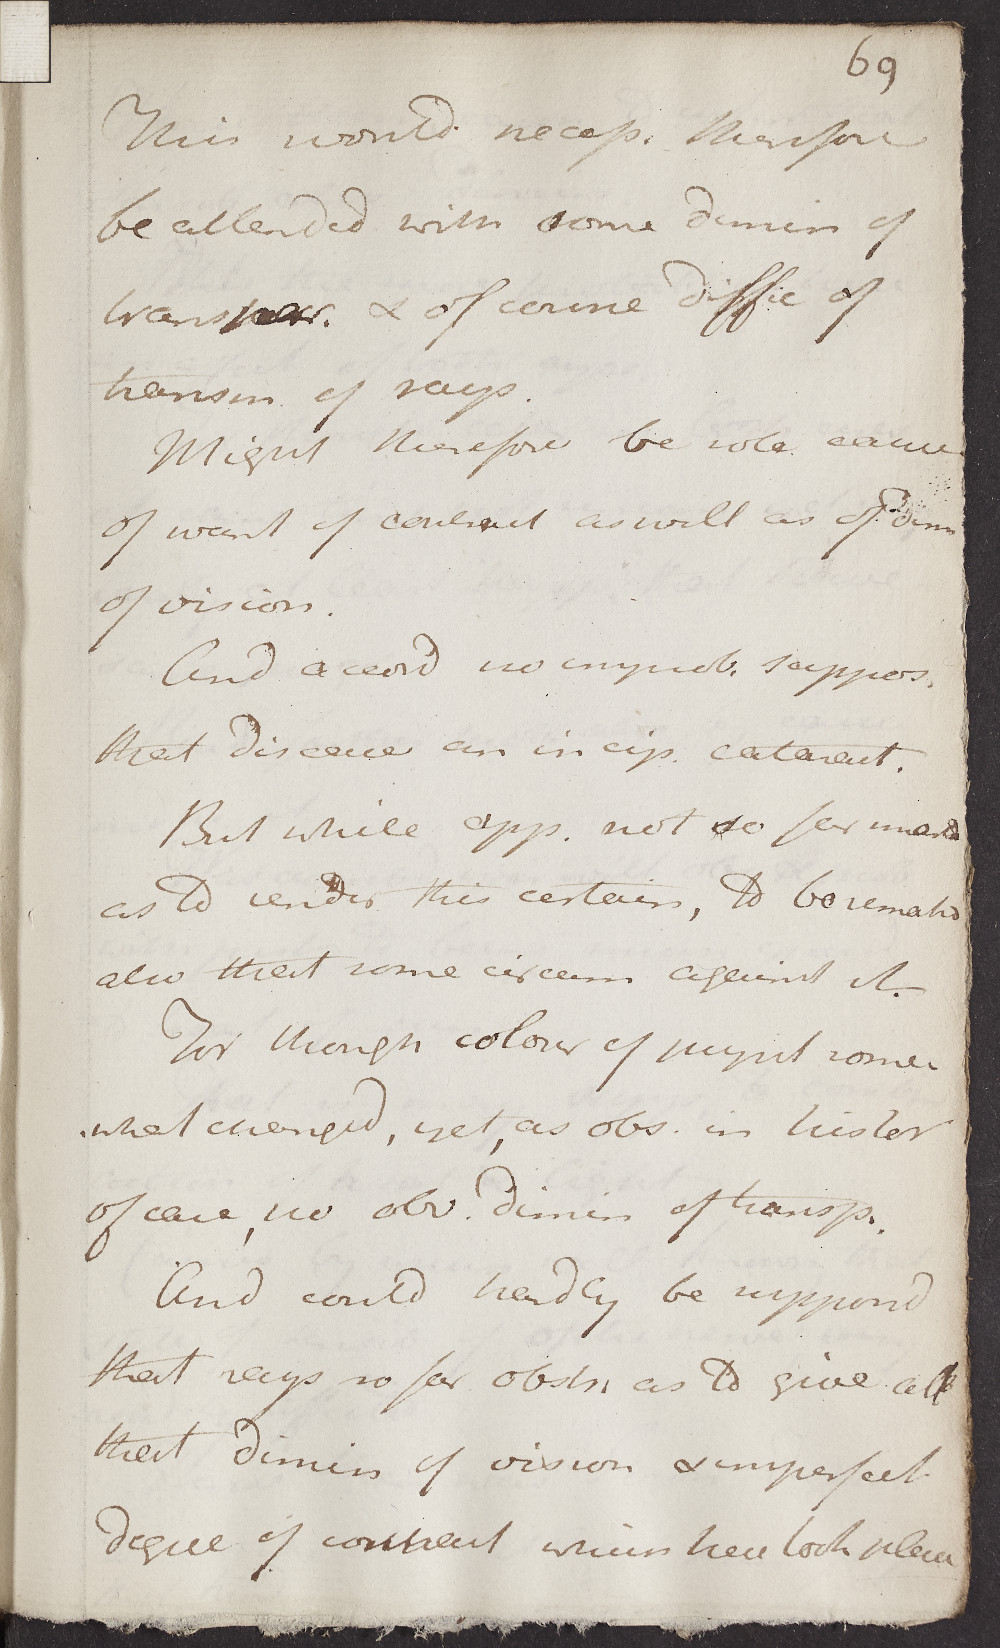 69
This would necess. therefore
be attended with some dimin of
transpar. & of course diffic of
transm of rays.
Might therefore be sole cause
of want of contract as well as of dimn
of vision.
And accord no improb. suppos.
that disease an incip. cataract.
But while app. not so far
as to render this certain, to be remarkd
also that some circum against it.
For though colour of pupil some
what changed, yet, as obs. in histor
of case, no obv. dimin of transp.
And could hardly be supposd
that rays so far obstr. as to give all
that dimin of vision & imperfect
degree of contract which here took place